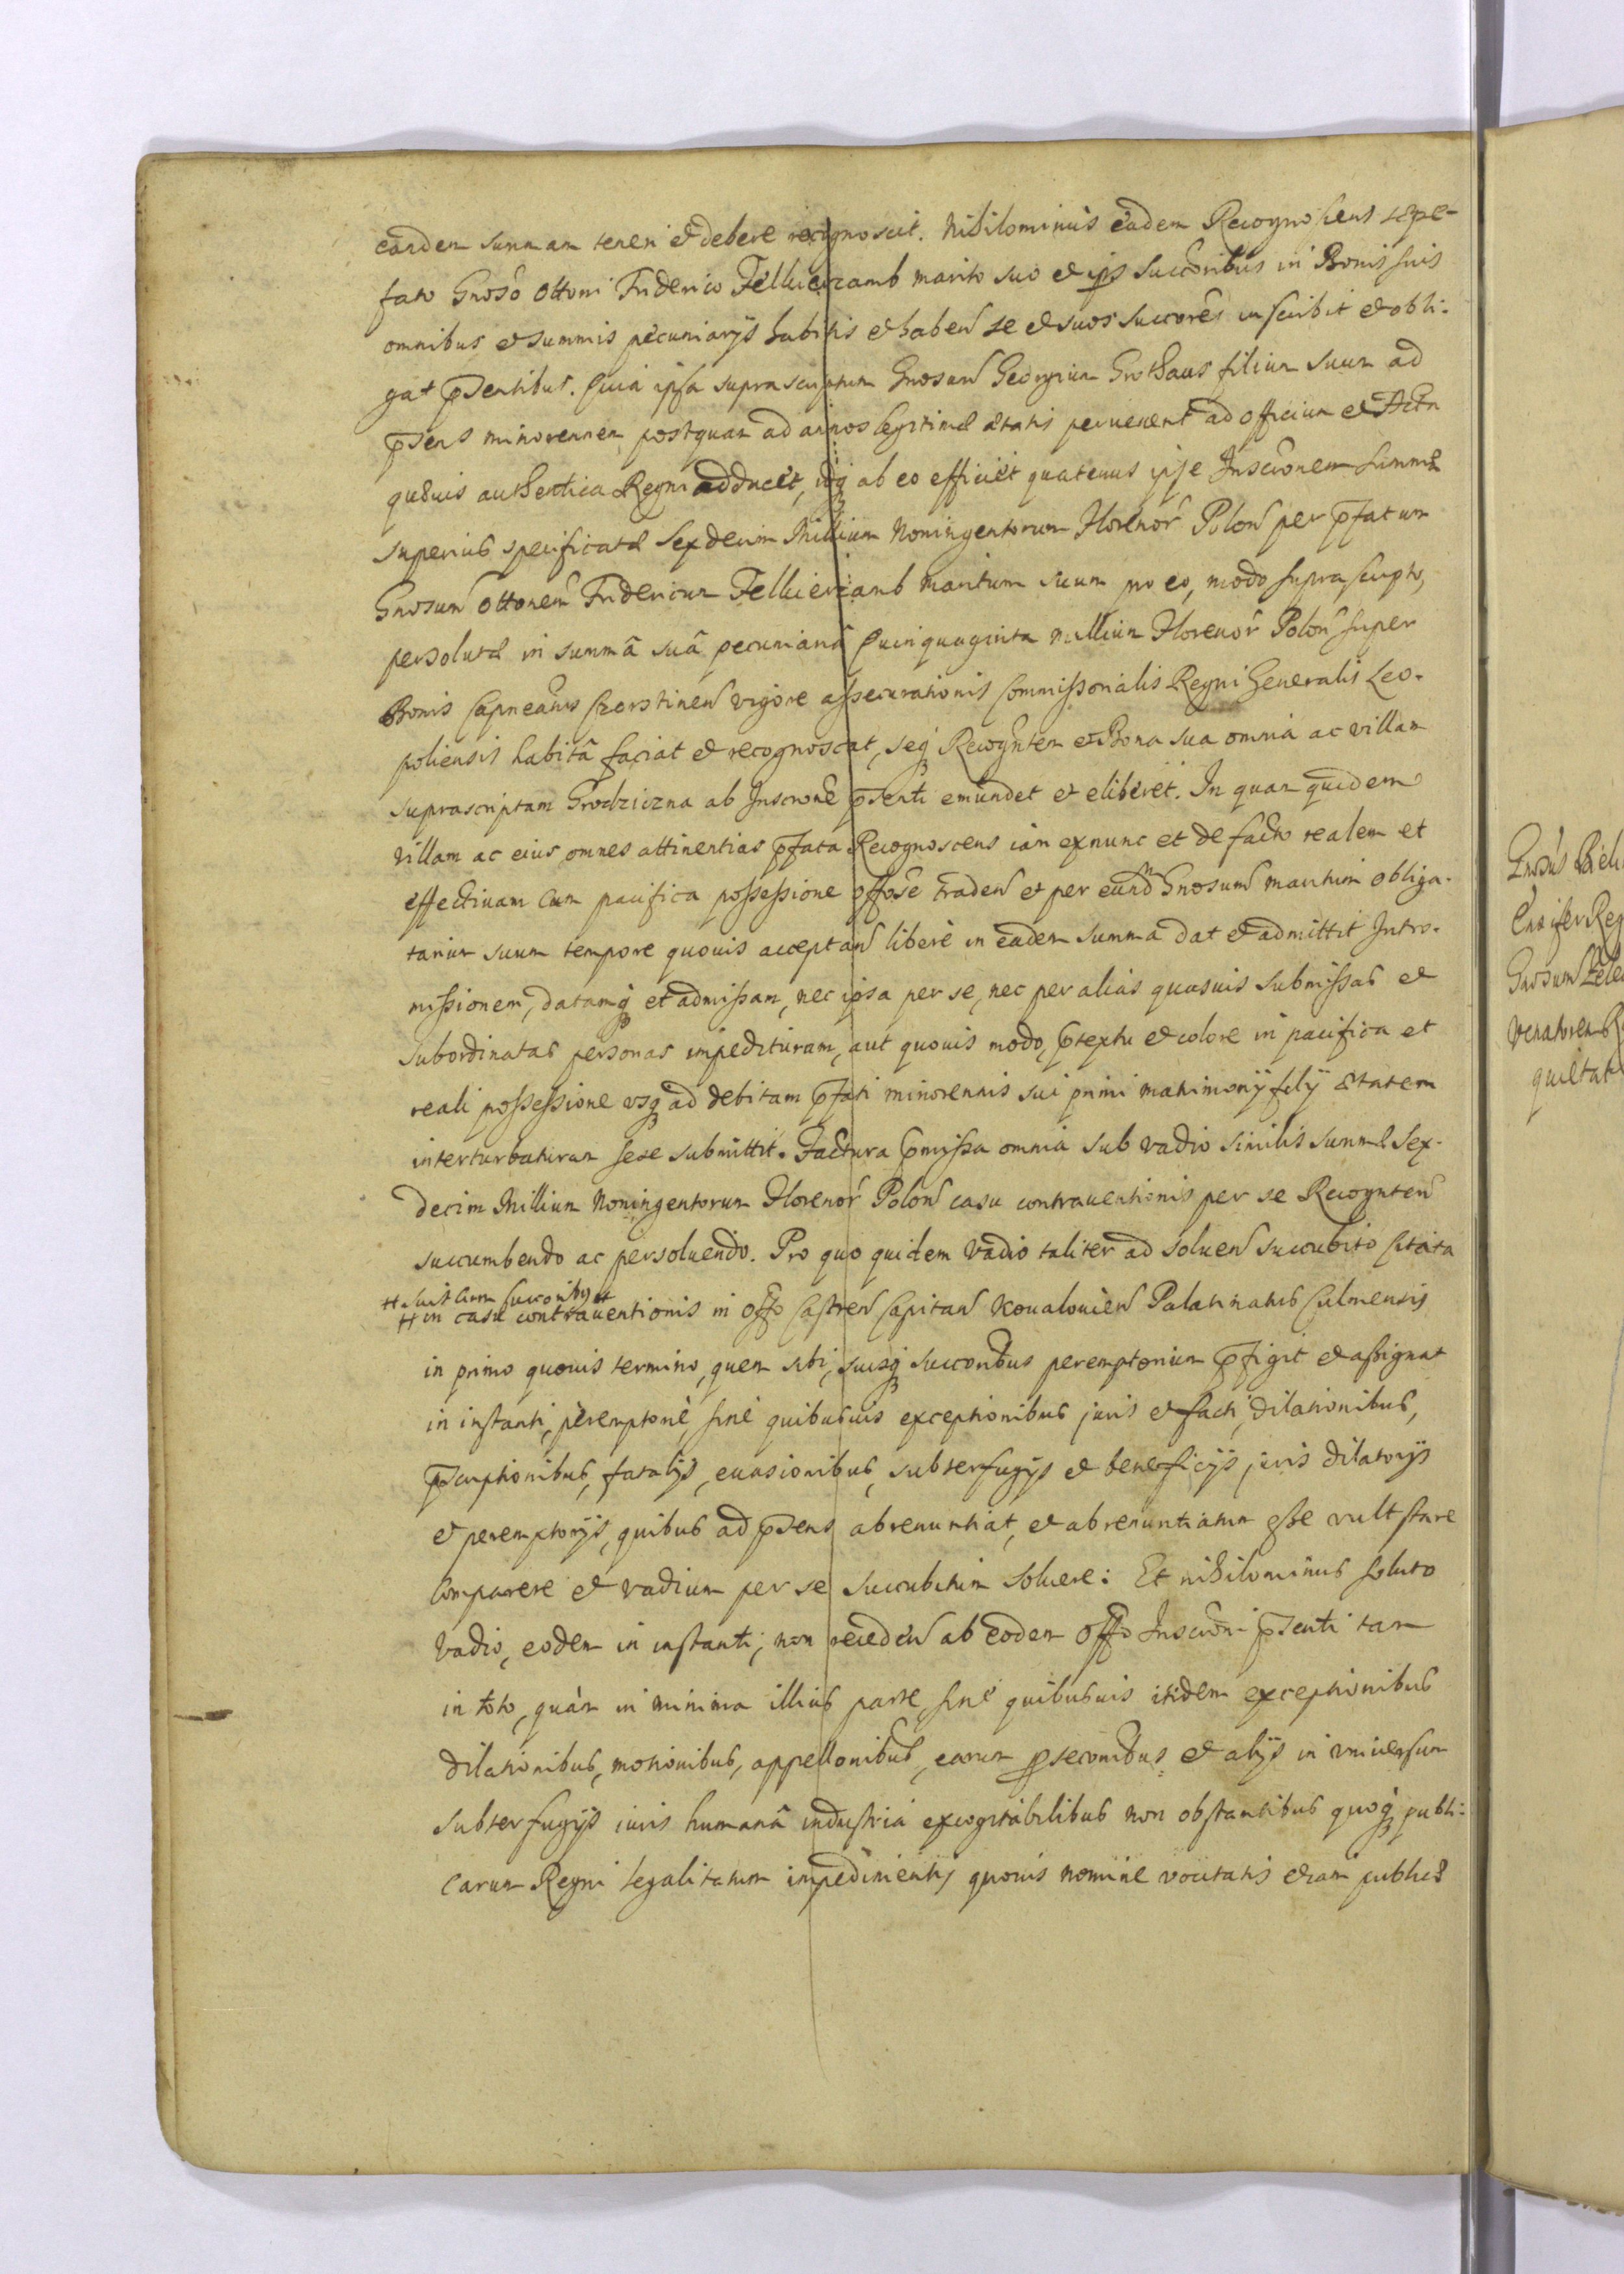 eandem summam teneri et debere recognoscit. Nihilominus eadem Recognoscens sepe-
fato Gnoso Ottoni Friderico Felkierzamb marito suo et ipsis Succoribus in Bonis suis
omnibus et summis pecuniarijs habitis et haben se et suos succores inscribit et obli-
gat pSentibus. Quia ipsa suprascriptum Gnosum Georgium Grothaus filium suum ad
pSens minorennem postquam ad annos legitimae aetatis pervenerit ad officium et Acta
quaevis authentica Regni adducet, idq ab eo efficiet quatenus ipse Inscronem Summae
superius specificatae Sexdecim Millium Noningentorum Florenor Polon per pfatum
Gnosum Ottonem Fridericum Felkierzamb maritum suum pro eo, modo suprascripto,
persolutae in summâ suâ pecuniariâ Quinquaginta millium Florenor Polon super
Bonis Capneatus Czorstinen vigore assecurationis Commissorialis Regni Generalis Leo-
poliensis habitâ faciat et recognoscat, seq Recognten et Bona sua omnia ac villam
suprascriptam Grodziczna ab Inscrone pSenti emundet et eliberet. In quam quidem
villam ac eius omnes attinentias pfata Recognoscens iam exnunc et de facto realem et
effectivam cum pacifica possessione offose traden et per eundm Gnosum maritum obliga-
tarium suum tempore quovis acceptan liberè in eadem summa dat et admittit Intro-
missionem, datamq et admissam, nec ipsa per se, nec per alias quasvis submissas et
subordinatas personas impedituram, aut quovis modo, ptextu et colore in pacifica et
reali possessione vsq ad debitam pfati minorennis sui primi matrimonij filij aetatem
interturbaturam sese submittit. Factura pmissa omnia sub vadio similis summae Sex-
decim Millium Noningentorum Florenor Polon casu contraventionis per se Recognten
succumbendo ac persolvendo. Pro quo quidem Vadio taliter ad solven succubito Citata
# suis cum succoribus #
# in casu contraventionis in Offo Castren Capitan Kovalovien Palatinatus Culmensis
in primo quovis termino, quem sibi, suisq succoribus peremptorium pfigit et assignat
in instanti, peremptoriè, sinè quibusvis exceptionibus juris et facti, dilationibus,
pscriptionibus, fatalijs, evasionibus, subterfugijs et beneficijs juris dilatorijs
et peremptorijs, quibus ad pSens abrenuntiat, et abrenuntiatum esse vult stare
Comparere et vadium per se succubitum solvere: Et nihilominus soluto
Vadio, eodem in instanti, non receden ab eodem Offo Inscroni pSenti tam
in toto, quàm in minima illius parte, sinè quibusvis itidem exceptionibus
dilationibus, motionibus, appellonibus, earum pseconibus, et alijs in vniversum
subterfugijs iuris humanâ industriâ excogitabilibus non obstantibus quoq publi-
carum Regni legalitatum impedimentis quovis nomine vocitatis etiam publicae
Gnosus
Ensifer Reg
Gnosum
Venatorem R
quietat